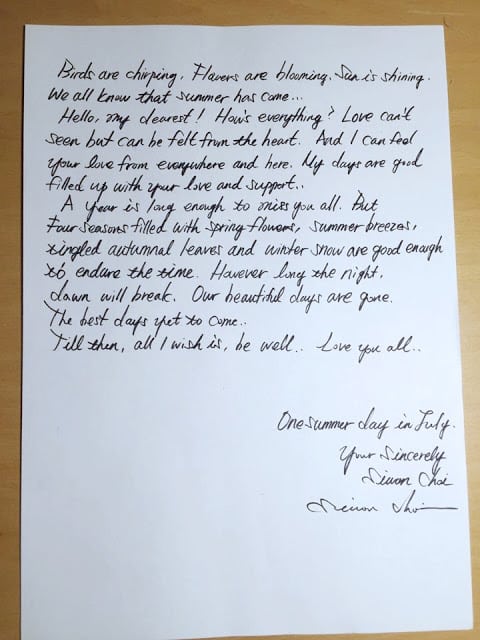 Birds are chirping. Flowers are blooming. Sun is shining.
We all know that summer has come...
Hello, my dearest! How's everything? Love can't
seen but can be felt from the heart. And I can feel
your love from everywhere and here. My days are good
filled up with your love and support..
A year is long enough to miss you all. But
Four seasons filled with spring flowers, summer breezes,
tingled autumnal leaves and winter snow are good enough
to endure the time. However long the night,
dawn will break. Our beautiful days are gone.
The best days yet to come..
Till then, all I wish is, be well.. Love you all..
One summer day in July.
Your Sincerely
Siwon Choi
Siwon Choi